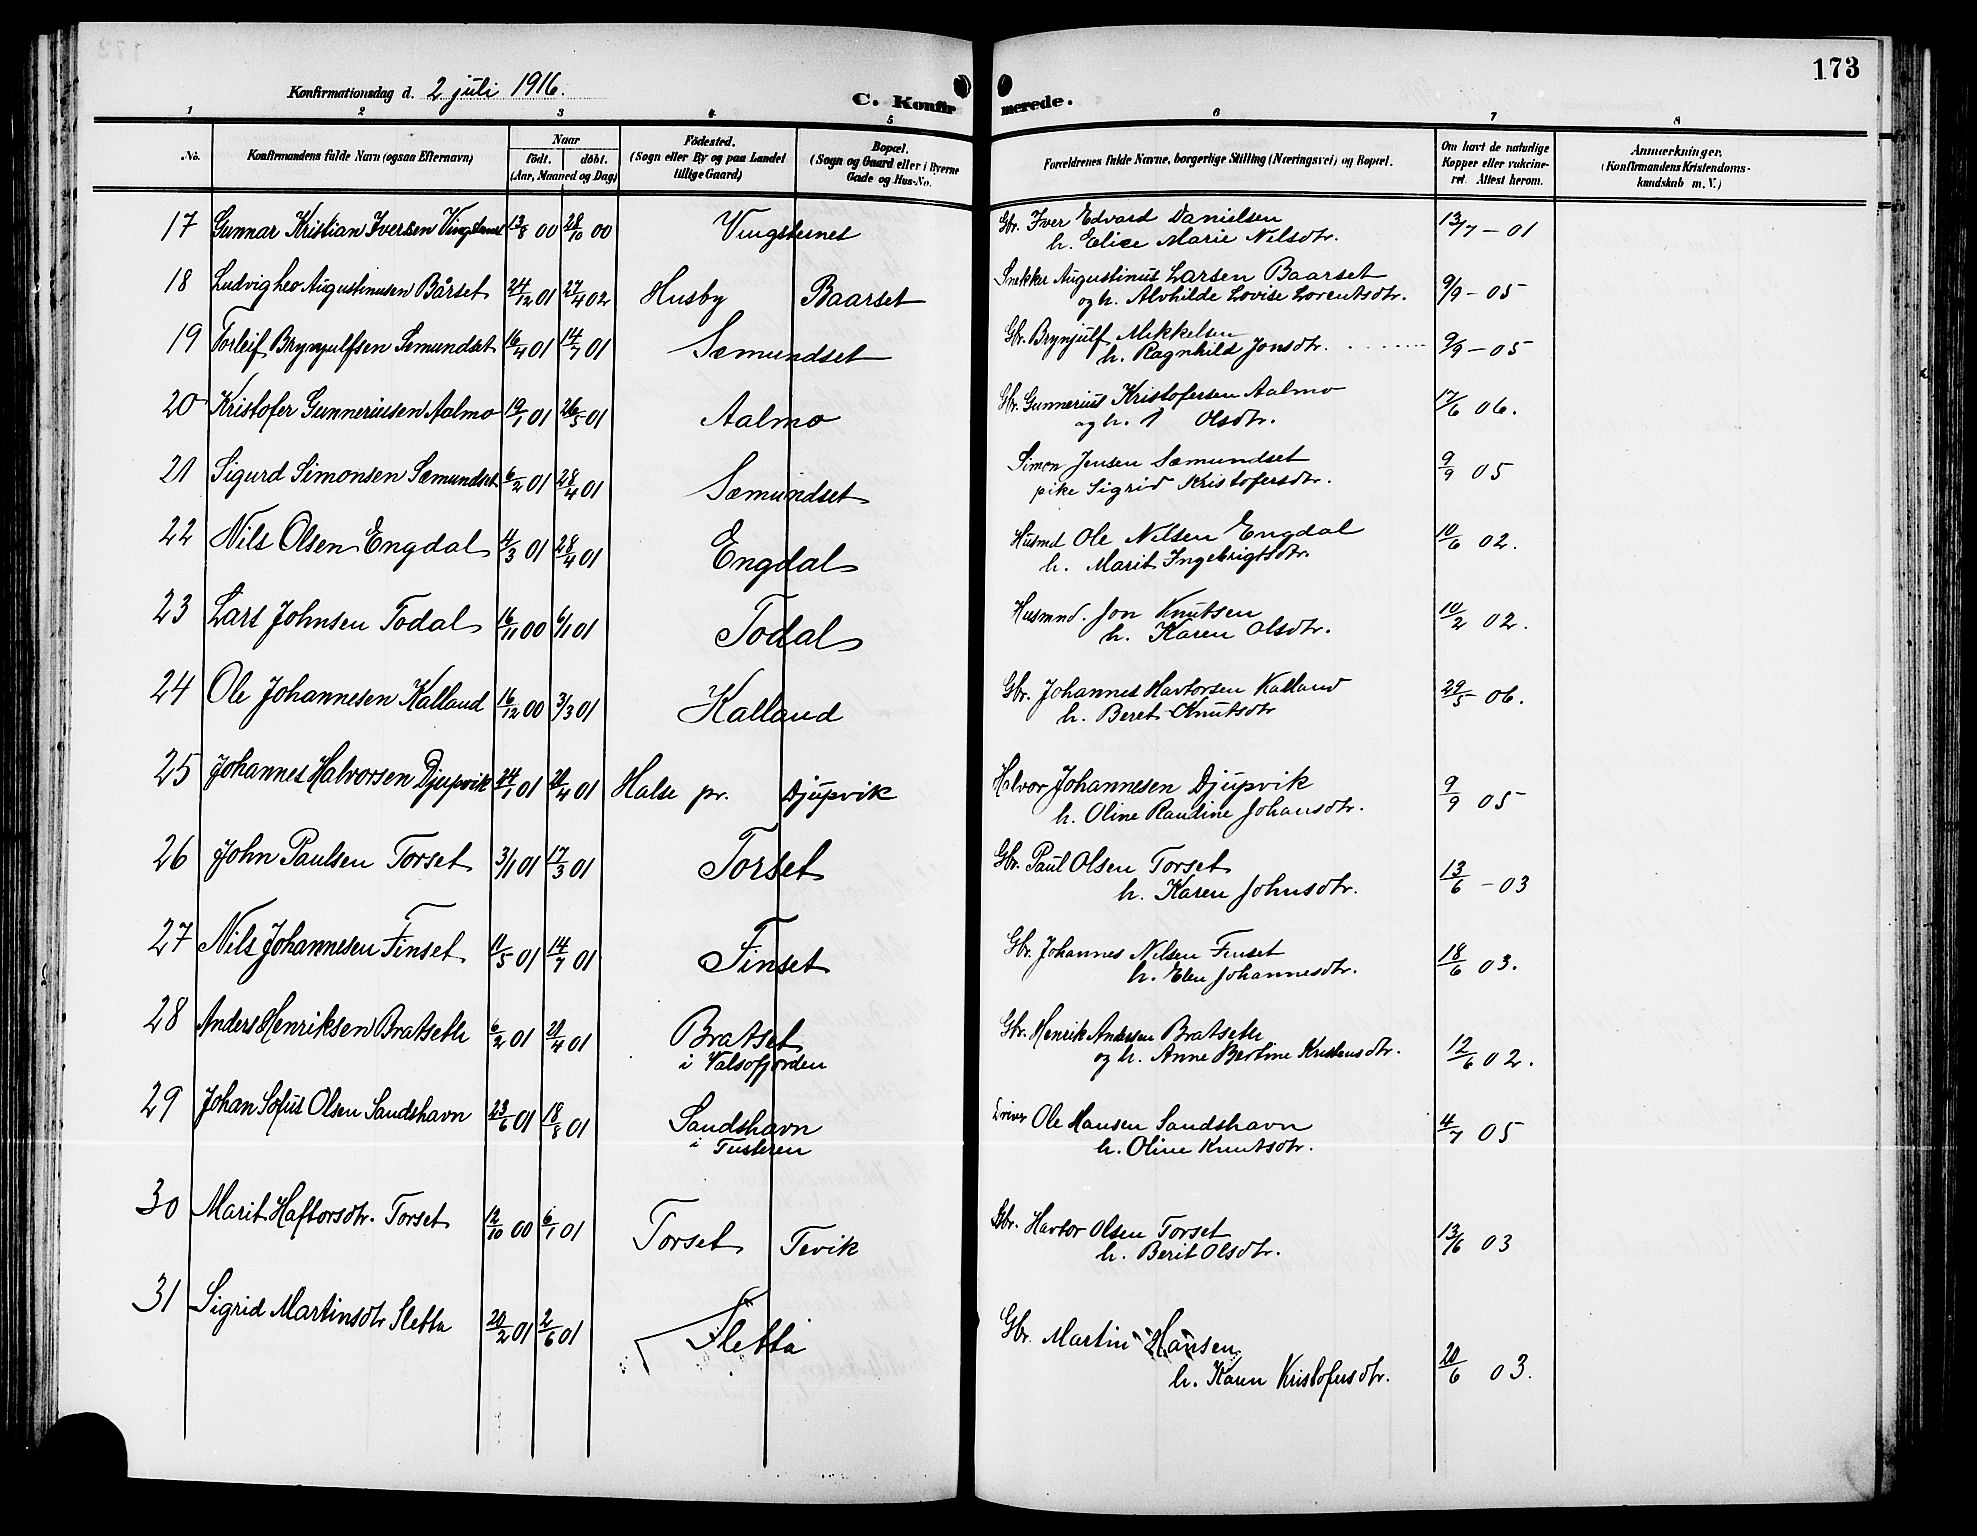 173
Konfirmationsdag d. 2 juli 1916.
C. Konfirmerede.
1 2 3 4 5 6 7 8
No. Konfirmandens fulde Navn (ogsaa Efternavn) Naar födt. döbt. (Aar, Maaned og Dag) Födested. (Sogn eller By og paa Landet tillige Gaard) Bopæl. (Sogn og Gaard eller i Byerne Gade og Hus-No. Forældrenes fulde Navne, borgerlige Stilling (Næringsvei) og Bopæl. Om havt de naturlige Kopper eller vakcineret. Attest herom. Anmærkninger. (Konfirmandens Kristendomskundskab m. V.)
17 Gunnar Kristian Iversen Vingsternes 13/8 00 28/10 00 Vingsternes Gbr. Iver Edvard Danielsen 13/7 - 01
h. Elise Marie Nilsdtr.
18 Ludvig Leo Augustinusen Bårset 24/12 01 27/4 02 Husby Baarset Snekker Augustinus Larsen Baarset 9/9 - 05
og h. Alvhilde Lovise Lorentsdtr.
19 Torleif Brynjulfsen Semundset 16/4 01 14/7 01 Sæmundset Gbr. Brynjulf Mikkelsen 9/9 - 05
h. Ragnhild Jonsdtr.
20 Kristofer Gunneriussen Aalmo 19/1 01 26/5 01 Aalmo Gbr. Gunnerius Kristofersen Aalmo 17/6 06.
og h. Olsdtr.
21 Sigurd Simonsen Sæmundset 6/2 01 28/4 01 Sæmundset Simon Jensen Sæmundset 9/9 05
pike Sigrid Kristofersdtr.
22 Nils Olsen Engdal 4/3 01 28/4 01 Engdal Husmd Ole Nilsen Engdal 10/6 02.
h. Marit Ingebrigtsdtr.
23 Lars Johnsen Todal 16/11 00 6/1 01 Todal Husmnd. Jon Knutsen 10/2 02.
h. Karen Olsdtr.
24 Ole Johannesen Kalland 16/12 00 3/3 01 Kalland Gbr. Johannes Havtorsen Kalland 29/5 06.
h. Beret Knutsdtr
25 Johannes Halvorsen Djupvik 24/1 01 21/4 01 Halse pr. Djupvik Halvor Johannesen Djupvik 9/9 05
h. Oline Randine Johansdtr.
26 John Paulsen Torset 3/1 01 17/3 01 Torset Gbr. Paul Olsen Torset 13/6 - 03
h. Karen Johnsdtr.
27 Nils Johannesen Finset 11/5 01 14/7 01 Finset Gbr. Johannes Nilsen Finset 18/6 03.
h. Elen Johannesdtr.
28 Anders Henriksen Bratseth 6/2 01 21/4 01 Bratset Gbr. Henrik Andersen Bratseth 12/6 02.
i Valsøfjorden og h. Anne Bertine Kristensdtr.
29 Johan Sofus Olsen Sandshavn 23/6 01 18/8 01 Sandshavn Ole Hansen Sandshavn 4/7 05
i Tusteren h. Oline Knutsdtr.
30 Marit Haftorsdtr. Torset 12/10 00 6/1 01 Torset Tevik Gbr. Havtor Olsen Torset 13/6 03
h. Berit Olsdtr.
31 Sigrid Martinsdtr Sletta 20/2 01 2/6 01 Sletta Gbr. Martin Hansen 20/6 03.
h. Karen Kristofersdtr.